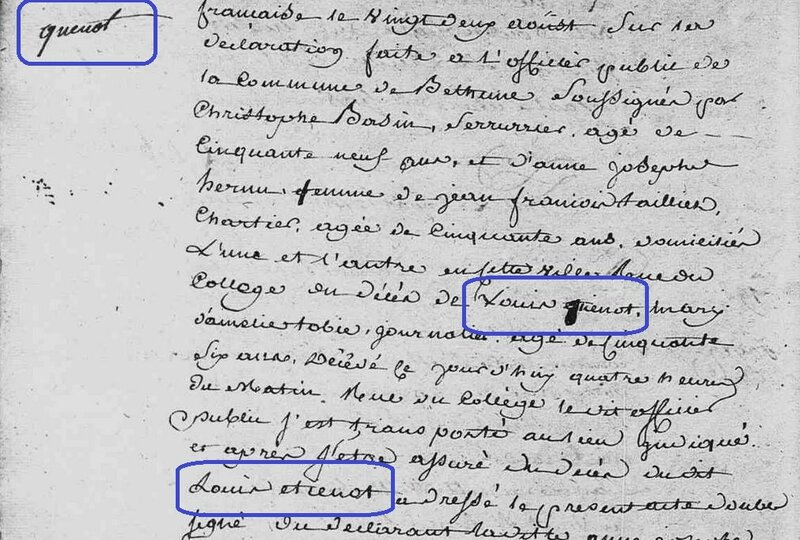 quenot
francaise le vingt deux aoust sur la
declaration faite a l'officier public de
la Commune de Bethune soussigné par
Christophe Basin, serrurrier, agé de
Cinquante neuf ans, et d'anne josephe
hernu, femme de jean francois taillier,
Chartier, agée de Cinquante ans, domiciliés
L'une et l'autre en cette ville Rue du
College du décés de Louis quenot, mary
d'amelie tobie, journalier, agé de Cinquante
six ans, décédé ce jour d'huy quatre heures
du Matin, Rue du Collége le dit officier
public s'est transporté au lieu indiqué
et apres s'etre assuré du décés du dit
Louis etienot a dressé le present acte double
signé du declarant la ditte anne